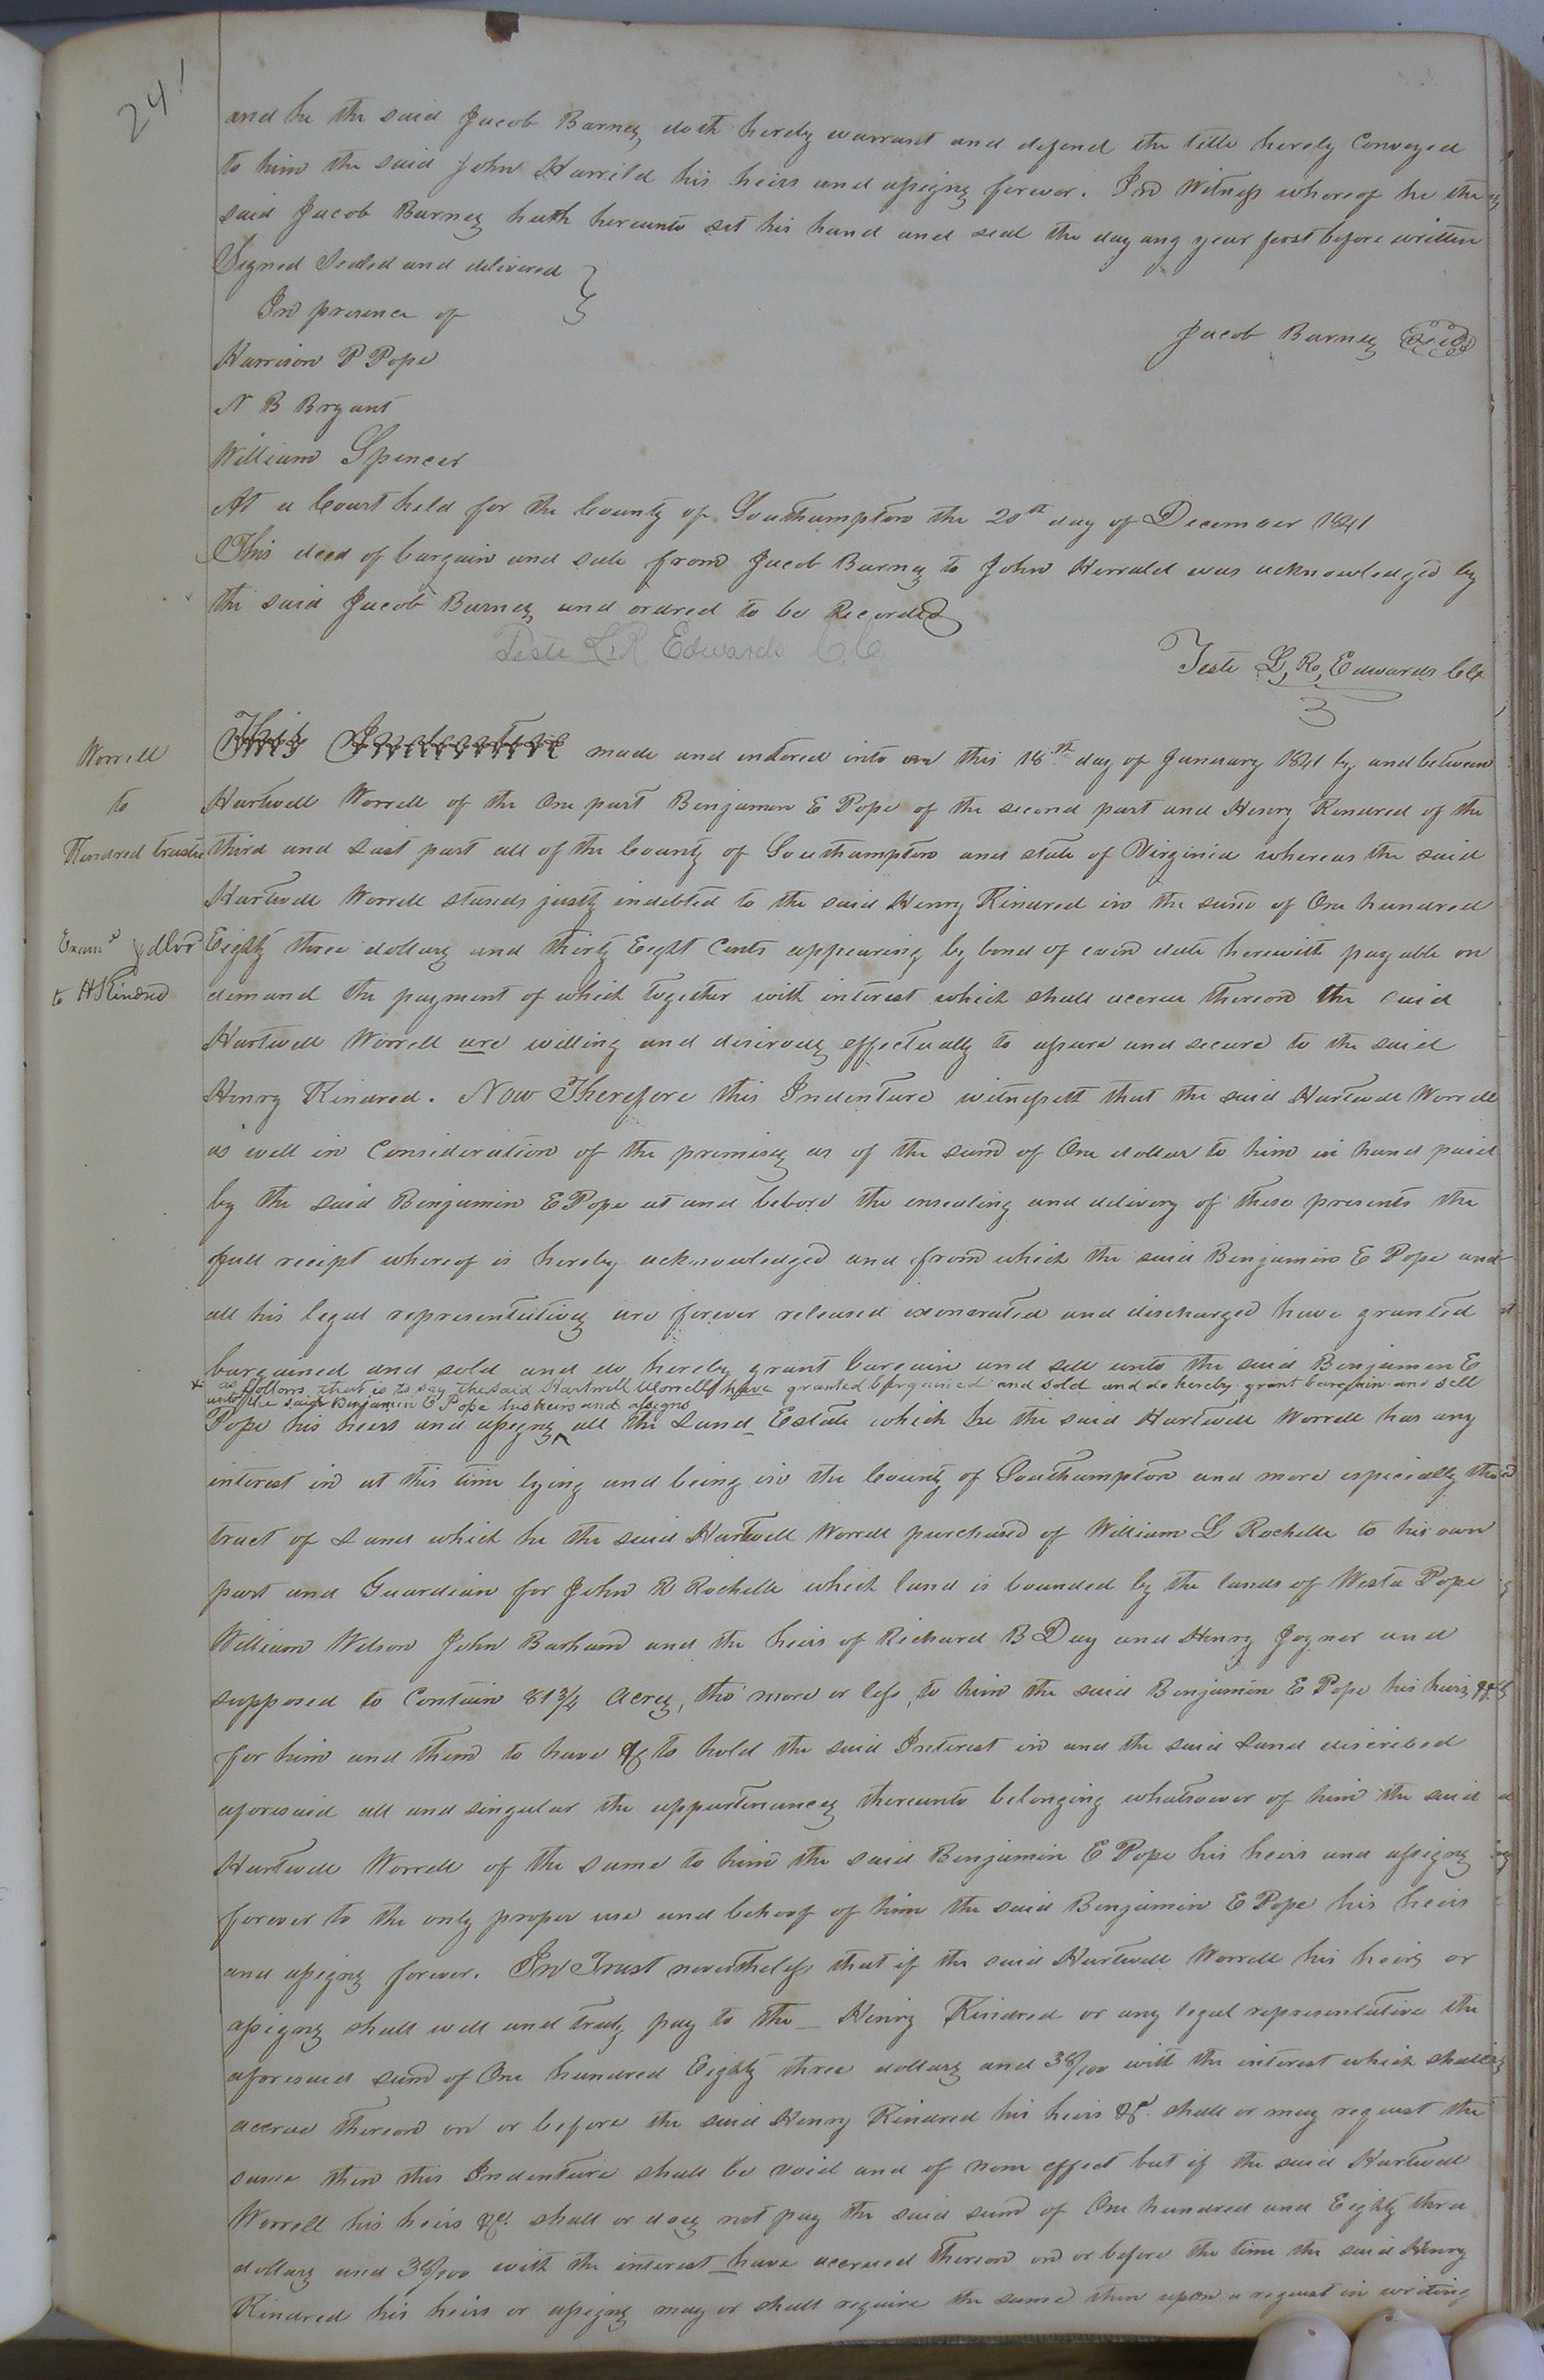 241
and he the said Jacob Barnes doth hereby warrant and defend the title hereby Conveyed
to him the said John Harrild his heirs and assigns forever. In Witness whereof he the
said Jacob Barnes hath hereunto set his hand and seal the day ang year first before written
Signed Sealed and delivered
In presence of
Jacob Barnes Seal
Harrison P Pope
N B Bryant
William Spencer
At a Court held for the County of Southampton the 20th day of December 1841
This deed of bargain and sale from Jacob Barnes to John Herrald was acknowledged by
the said Jacob Barnes and ordred to be Recorded
Teste L. R. Edwards C.C.
Teste L, R, Edwards Clk
Worrell
to
Kindred trustee
Examd & dlvd
to H Kindred
This Indenture made and entered into on this 18th day of January 1841 by and between
Hartwell Worrell of the One part Benjamin E Pope of the second part and Henry Kindred of the
third and Last part all of the County of Southampton and state of Virginia whereas the said
Hartwell Worrell stands justly indebted to the said Henry Kindred in the sum of One hundred
Eighty three dollars and thirty Eight Cents appearing by bond of even date herewith payable on
demand the payment of which together with interest which shall accrue thereon the said
Hartwell Worrell are willing and disirous effectually to assure and secure to the said
Henry Kindred. Now Therefore this Indenture witnesseth that the said Hartwell Worrell
as well in Consideration of the premises as of the sum of One dollar to him in hand paid
by the said Benjamin E Pope at and before the ensealing and delivery of these presents the
full recipt whereof is hereby acknowledged and from which the said Benjamin E Pope and
all his legal representatives are forever released exonerated and discharged have granted
bargained and sold and do hereby grant bargain and sell unto the said Benjamin E
x as follows that is to say the said Hartwell Worrell have granted bargained and sold and do hereby grant bargain and sell
unto the said Benjamin E Pope his heirs and assigns
Pope his heirs and assigns ^ all the Land Estate which he the said Hartwell Worrell has any
interest in at this time lying and being in the County of Southampton and more especially the
tract of Land which he the said Hartwell Worrell purchased of William L Rochelle to his own
part and Guardian for John R Rochelle which land is bounded by the lands of Westa Pope
William Wilson John Barham and the heirs of Richard B Day and Henry Joyner and
supposed to Contain 81 3/4 Acres, tho' more or less, to him the said Benjamin E Pope his heirs &c
for him and them to have & to hold the said Interest in and the said Land discribed
aforesaid all and singular the appurtenances thereunto belonging whatsoever of him the said
Hartwell Worrell of the same to him the said Benjamin E Pope his heirs and assigns
forever to the only proper use and behoof of him the said Benjamin E Pope his heirs
and assigns forever. In Trust nevertheless that if the said Hartwell Worrell his heirs or
assigns shall well and truly pay to the _ Henry Kindred or any legal representative the
aforesaid sum of One hundred Eighty three dollars and 38/100 with the interest which shall
accrue thereon on or before the said Henry Kindred his heirs &c. shall or may request the
same then this Indenture shall be void and of none effect but if the said Hartwell
Worrell his heirs &c. shall or does not pay the said sum of One hundred and Eighty three
dollars and 38/100 with the interest have accrued thereon on or before the time the said Henry
Kindred his heirs or assigns may or shall require the same then upon a request in writing